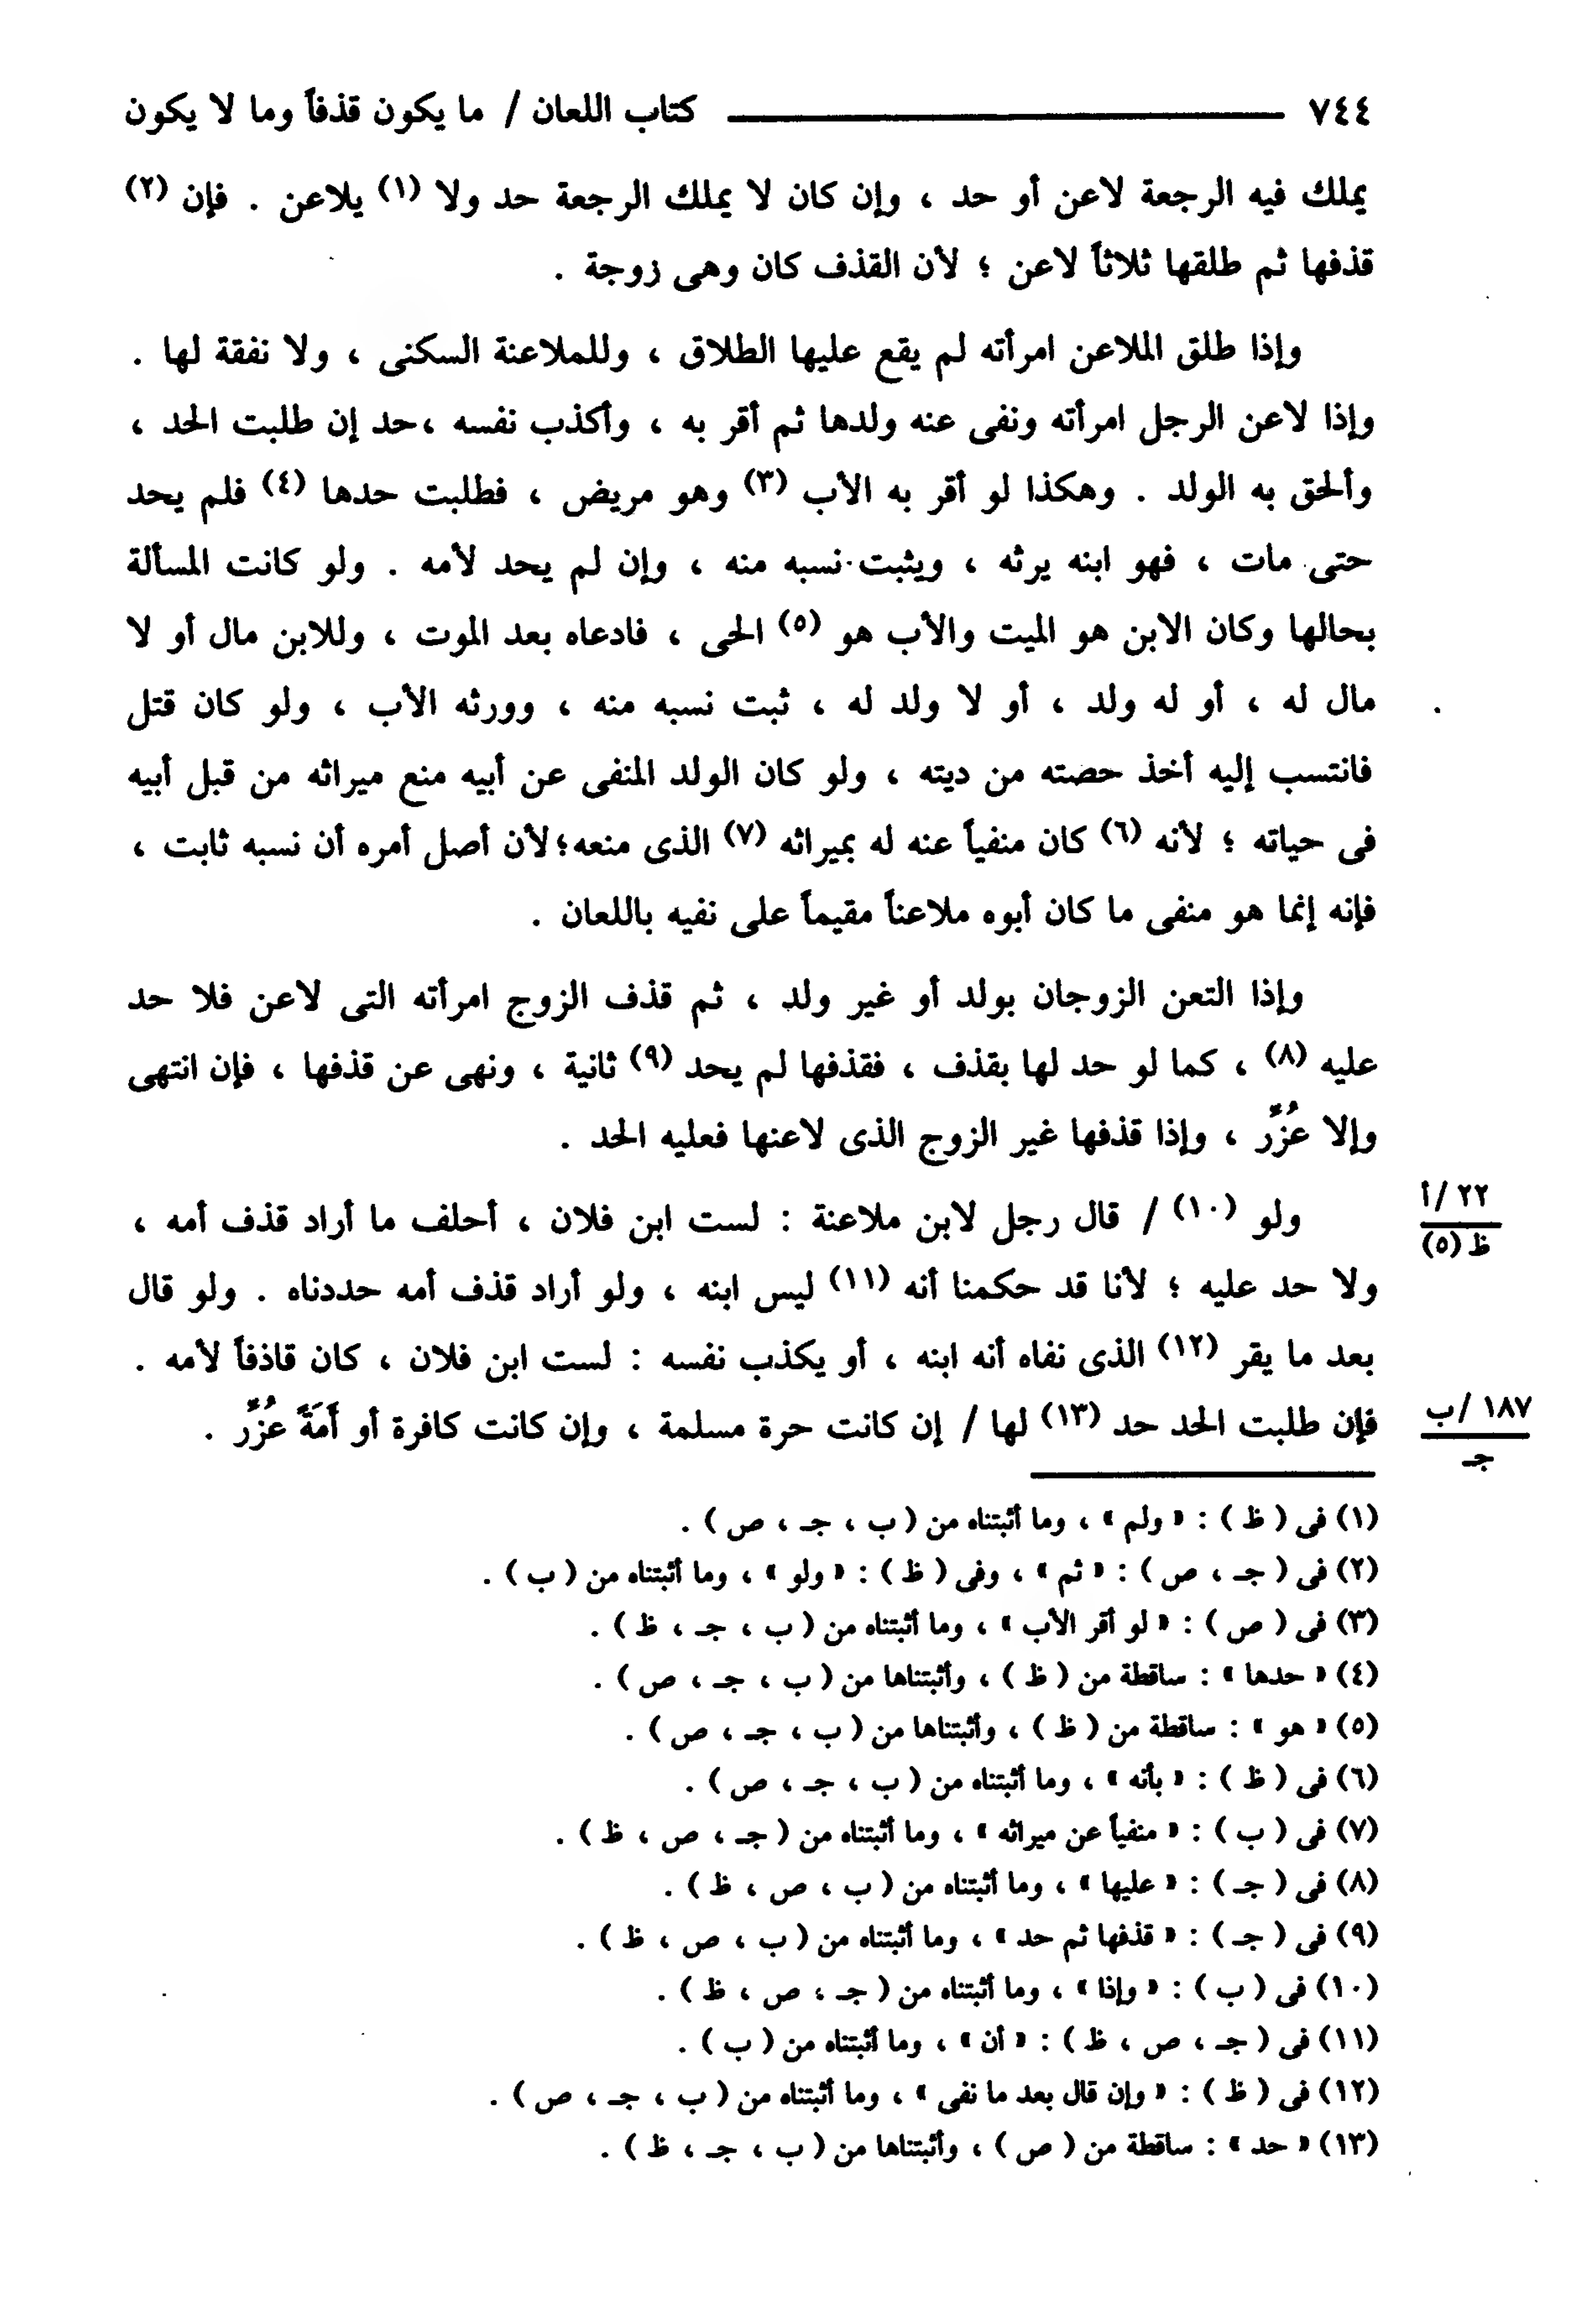 ٧٤٤ كتاب اللعان / ما يكون قذفاً وما لا يكون
يملك فيه الرجعة لاعن أو حد ، وإن كان لا يملك الرجعة حد ولا (١) يلاعن . فإن (٢)
قذفها ثم طلقها ثلاثاً لاعن ؛ لأن القذف كان وهى زوجة .
وإذا طلق الملاعن امرأته لم يقع عليها الطلاق ، وللملاعنة السكنى ، ولا نفقة لها .
وإذا لاعن الرجل امرأته ونفى عنه ولدها ثم أقر به ، وأكذب نفسه ،حد إن طلبت الحد ،
وألحق به الولد . وهكذا لو أقر به الأب (٣) وهو مريض ، فطلبت حدها (٤) فلم يحد
حتى مات ، فهو ابنه يرثه ، ويثبت نسبه منه ، وإن لم يحد لأمه . ولو كانت المسألة
بحالها وكان الابن هو الميت والأب هو (٥) الحى ، فادعاه بعد الموت ، وللابن مال أو لا
مال له ، أو له ولد ، أو لا ولد له ، ثبت نسبه منه ، وورثه الأب ، ولو كان قتل
فانتسب إليه أخذ حصته من ديته ، ولو كان الولد المنفى عن أبيه منع ميراثه من قبل أبيه
فى حياته ؛ لأنه (٦) كان منفياً عنه له بميراثه (٧) الذى منعه؛لأن أصل أمره أن نسبه ثابت ،
فإنه إنما هو منفى ما كان أبوه ملاعناً مقيماً على نفيه باللعان .
وإذا التعن الزوجان بولد أو غير ولد ، ثم قذف الزوج امرأته التى لاعن فلا حد
عليه (٨) ، كما لو حد لها بقذف ، فقذفها لم يحد (٩) ثانية ، ونهى عن قذفها ، فإن انتهى
وإلا عُزِّر ، وإذا قذفها غير الزوج الذى لاعنها فعليه الحد .
ولو (١٠) / قال رجل لابن ملاعنة : لست ابن فلان ، أحلف ما أراد قذف أمه ،
٢٢ /أ
ظ (٥)
ولا حد عليه ؛ لأنا قد حكمنا أنه (١١) ليس ابنه ، ولو أراد قذف أمه حددناه . ولو قال
بعد ما يقر (١٢) الذى نفاه أنه ابنه ، أو يكذب نفسه : لست ابن فلان ، كان قاذفاً لأمه .
فإن طلبت الحد حد (١٣) لها / إن كانت حرة مسلمة ، وإن كانت كافرة أو أَمَةً عُزِّر .
١٨٧ /ب
جـ
(١) فى ( ظ ) : « ولم » ، وما أثبتناه من ( ب ، جـ ، ص ) .
(٢) فى ( جـ ، ص ) : « ثم » ، وفى ( ظ ) : « ولو » ، وما أثبتناه من ( ب ) .
(٣) فى ( ص ) : « لو أقر الأب » ، وما أثبتناه من ( ب ، جـ ، ظ ) .
(٤) « حدها » : ساقطة من ( ظ ) ، وأثبتناها من ( ب ، جـ ، ص ) .
(٥) « هو » : ساقطة من ( ظ ) ، وأثبتناها من ( ب ، جـ ، ص ) .
(٦) فى ( ظ ) : « بأنه » ، وما أثبتناه من ( ب ، جـ ، ص ) .
(٧) فى ( ب ) : « منفياً عن ميراثه » ، وما أثبتناه من ( جـ ، ص ، ظ ) .
(٨) فى ( جـ ) : « عليها » ، وما أثبتناه من ( ب ، ص ، ظ ) .
(٩) فى ( جـ ) : « قذفها ثم حد » ، وما أثبتناه من ( ب ، ص ، ظ ) .
(١٠) فى ( ب ) : « وإذا » ، وما أثبتناه من ( جـ ، ص ، ظ ) .
(١١) فى ( جـ ، ص ، ظ ) : « أن » ، وما أثبتناه من ( ب ) .
(١٢) فى ( ظ ) : « وإن قال بعد ما نفى » ، وما أثبتناه من ( ب ، جـ ، ص ) .
(١٣) « حد » : ساقطة من ( ص ) ، وأثبتناها من ( ب ، جـ ، ظ ) .